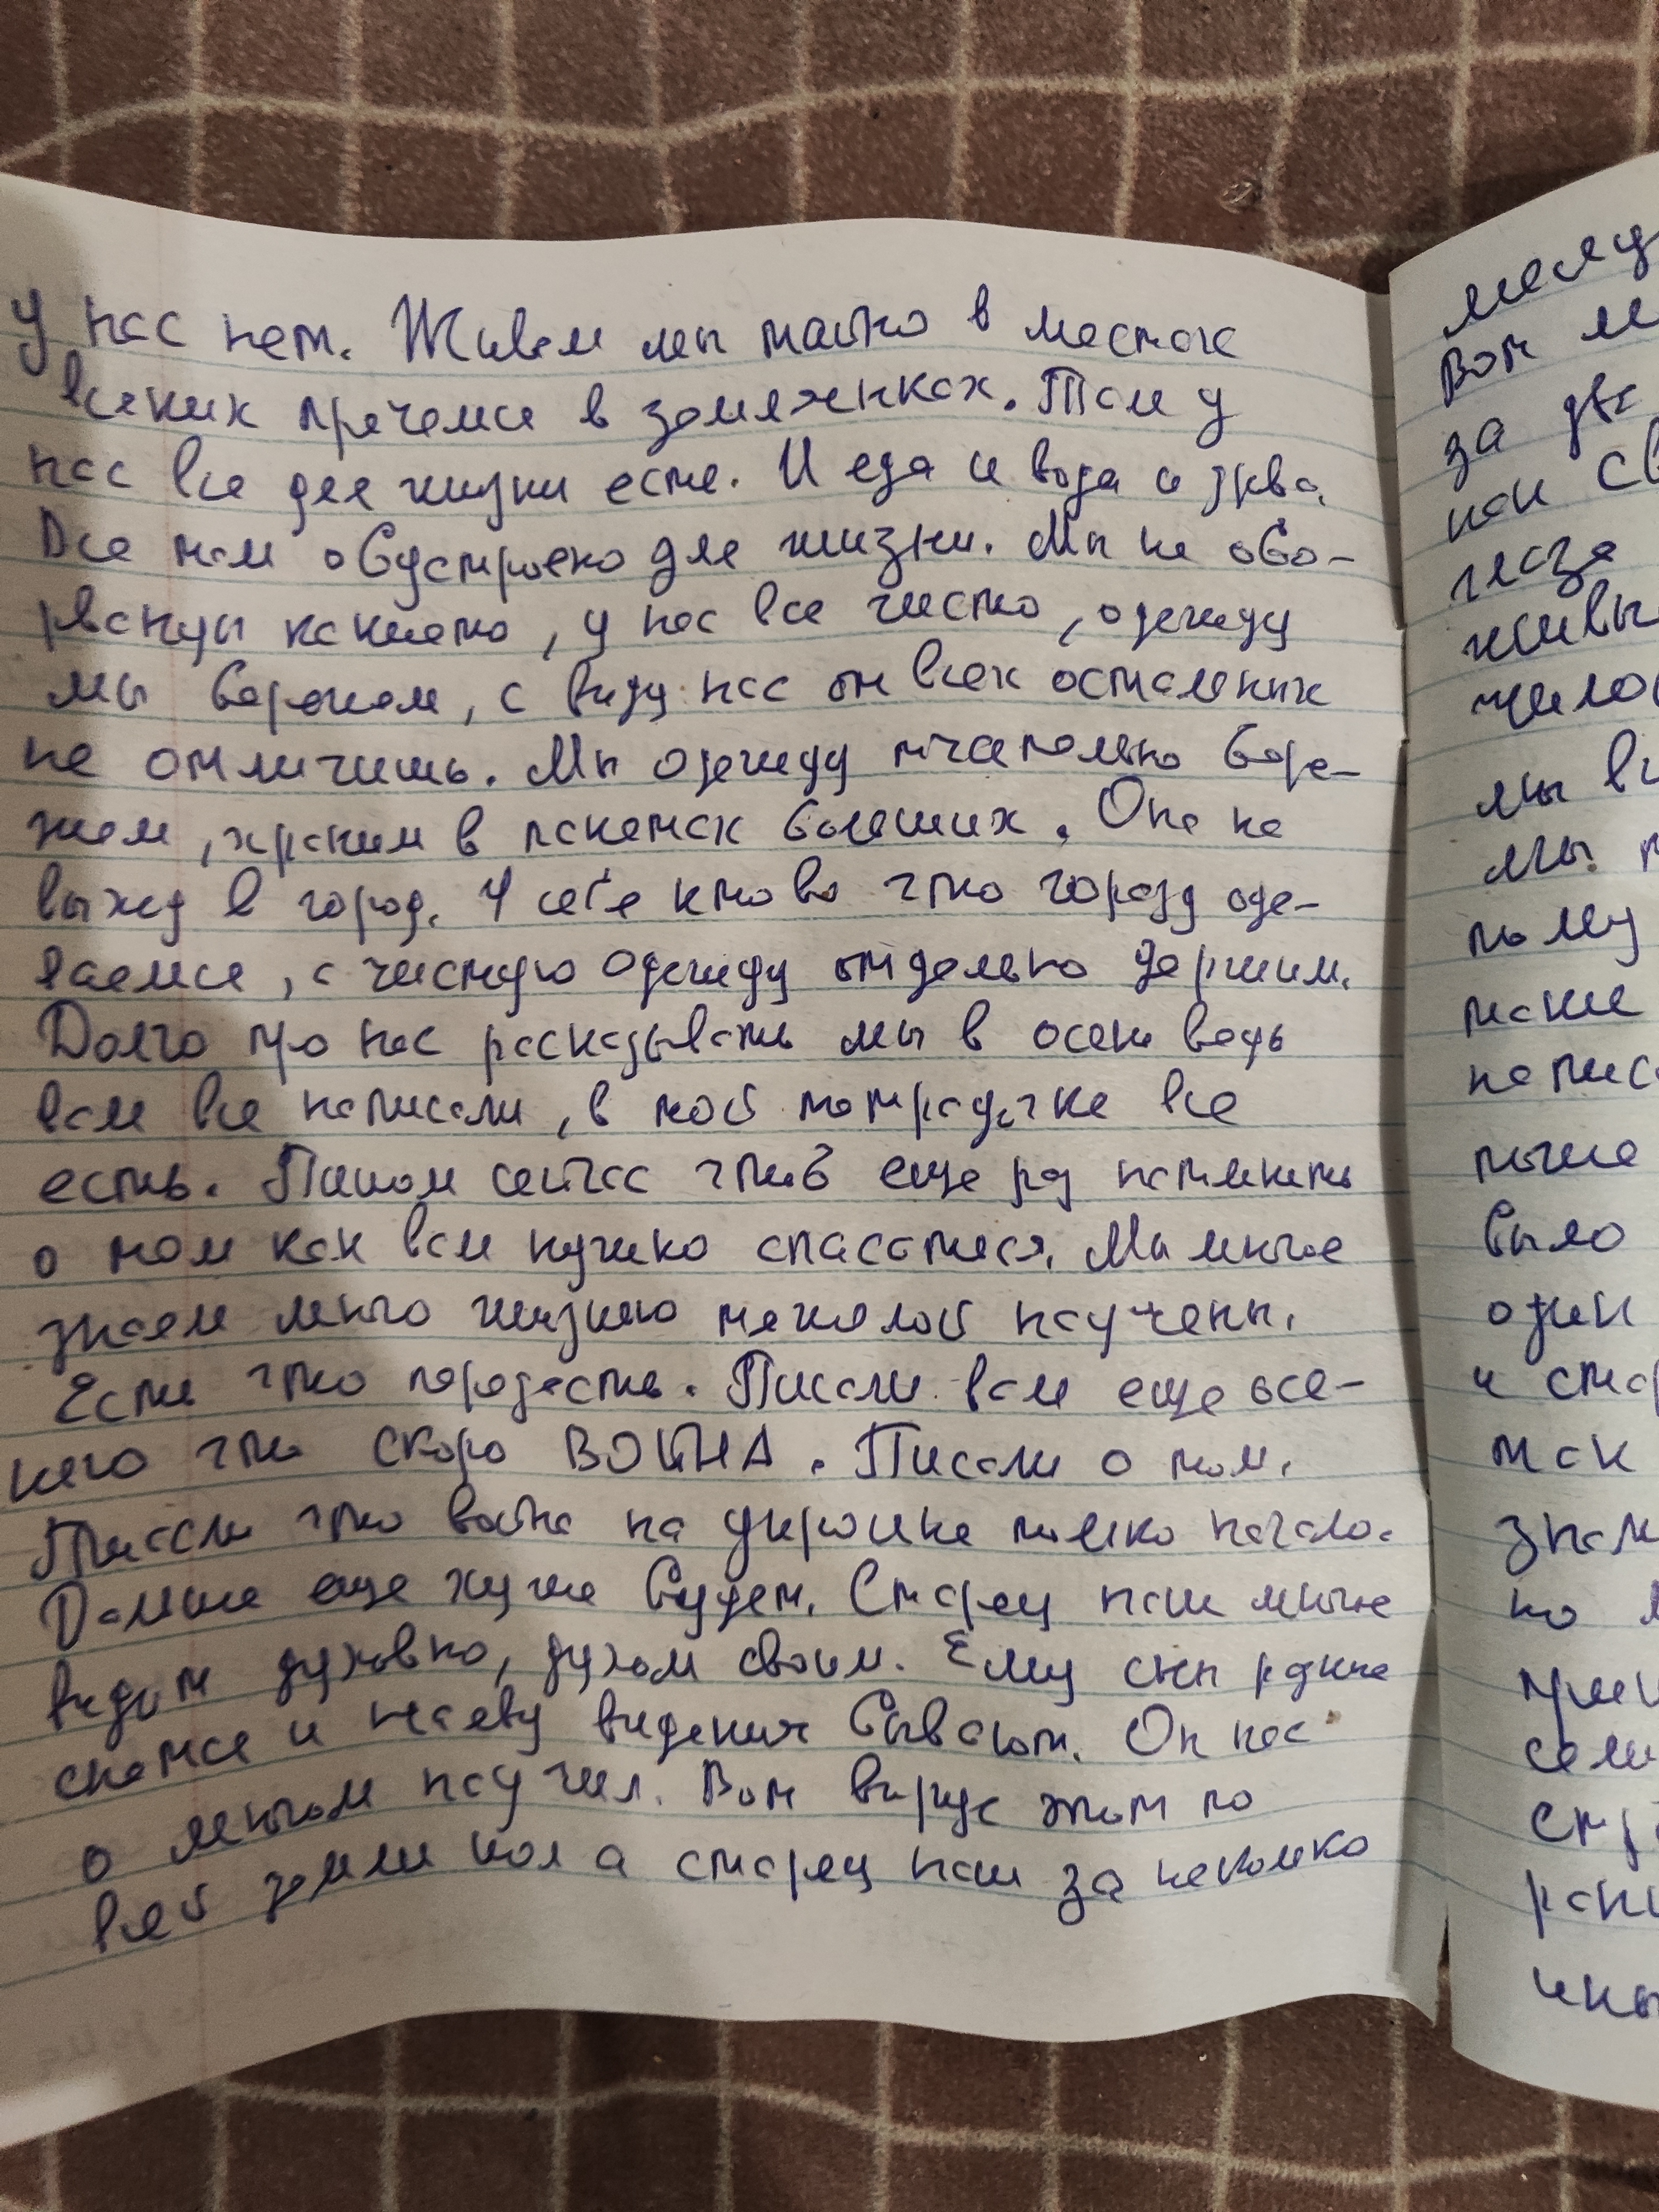 у нас нет. Живем мы тайно в местах
всяких прячемся в землянках. Там у
нас все для жизни есть. И еда и вода и дрва.
Все там обустроено для жизни. Мы не обо-
рванцы какието, у нас все чисто, одежду
мы бережем, с виду нас от всех остальных
не отличишь. Мы одежду тчательно бере-
жем, храним в пакетах больших. Она на
выход в город. У себя кто во что горазд оде-
ваемся, а чистую одежду отдельно держим.
Долго про нас расказывать мы в осень ведь
вам все написали, в той тетрадочке все
есть. Пишем сейчас чтоб еще раз напомнить
о том как вам нужно спасаться. Мы многое
знаем много жизнью тяжелой научены.
Есть что породасть. Писали вам еще осе-
нью что скоро ВОЙНА. Писали о том.
Писали что война на украине только начало.
Дальше еще хуже будет. Старец наш многое
видит духовно, духом своим. Ему сны разные
снятся и наяву видения бывают. Он нас
о многом научил. Вот вирус этот по
всей земли шол а старец наш за несколко
месяц
Вот
за два
как св
глаза
живы
мы
мы
тому
такие
написа
тоже
было
один
и ста
так
знам
но
семи